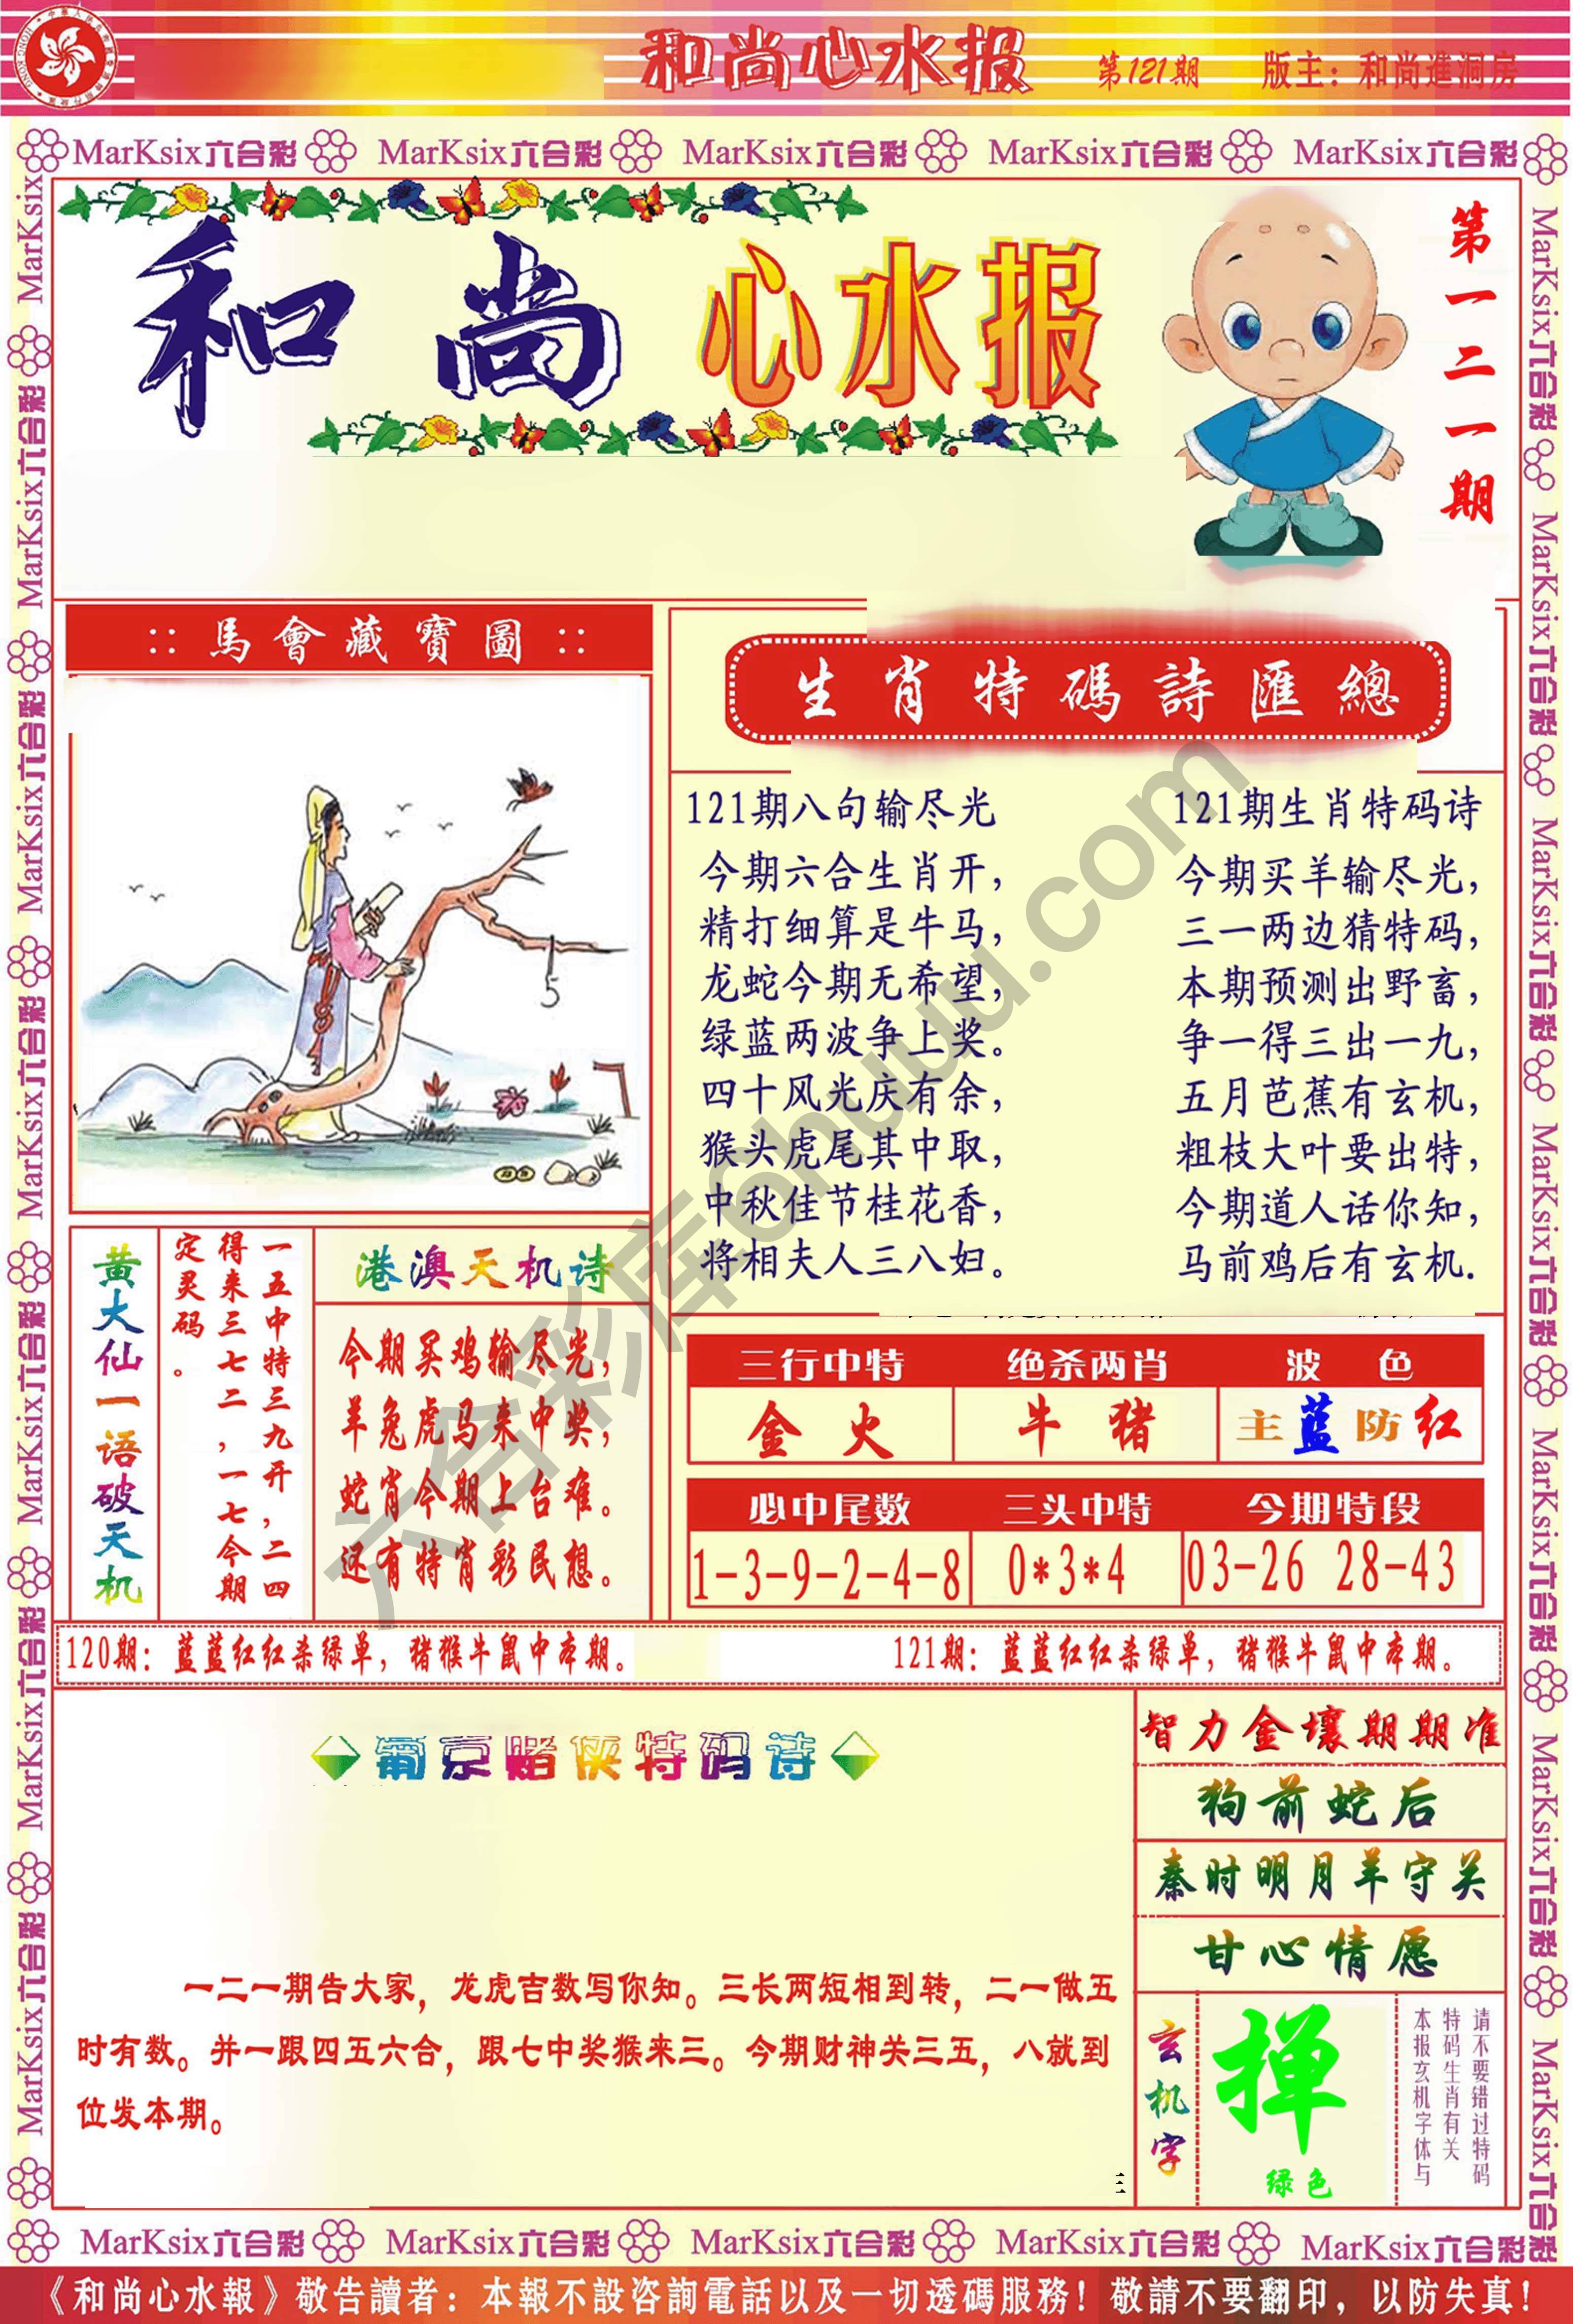 和尚心水报 第121期 版主：和尚進洞房
MarKsix六合彩 MarKsix六合彩 MarKsix六合彩 MarKsix六合彩 MarKsix六合彩
和尚 心水报
第一二一期
:: 馬會藏寶圖 ::
5
生肖特碼詩匯總
121期八句输尽光
今期六合生肖开，
精打细算是牛马，
龙蛇今期无希望，
绿蓝两波争上奖。
四十风光庆有余，
猴头虎尾其中取，
中秋佳节桂花香，
将相夫人三八妇。
121期生肖特码诗
今期买羊输尽光，
三一两边猜特码，
本期预测出野畜，
争一得三出一九，
五月芭蕉有玄机，
粗枝大叶要出特，
今期道人话你知，
马前鸡后有玄机.
黄大仙一语破天机
一五中特三九开，二四
得来三七二，一七今期
定灵码。
港澳天机诗
今期买鸡输尽光，
羊兔虎马来中奖，
蛇肖今期上台难。
还有特肖彩民想。
三行中特 绝杀两肖 波 色
金 火 牛 猪 主蓝防红
必中尾数 三头中特 今期特段
1-3-9-2-4-8 0*3*4 03-26 28-43
120期：蓝蓝红红杀绿单，猪猴牛鼠中本期。 121期：蓝蓝红红杀绿单，猪猴牛鼠中本期。
葡京赌侠特码诗
一二一期告大家，龙虎吉数写你知。三长两短相到转，二一做五
时有数。并一跟四五六合，跟七中奖猴来三。今期财神关三五，八就到
位发本期。
三
智力金壤期期准
狗前蛇后
秦时明月羊守关
甘心情愿
玄机字
禅
绿色
请不要错过特码
特码生肖有关
本报玄机字体与
六合彩库6huu.com
MarKsix六合彩 MarKsix六合彩 MarKsix六合彩 MarKsix六合彩 MarKsix六合彩
《和尚心水報》敬告讀者：本報不設咨詢電話以及一切透碼服務！敬請不要翻印，以防失真！